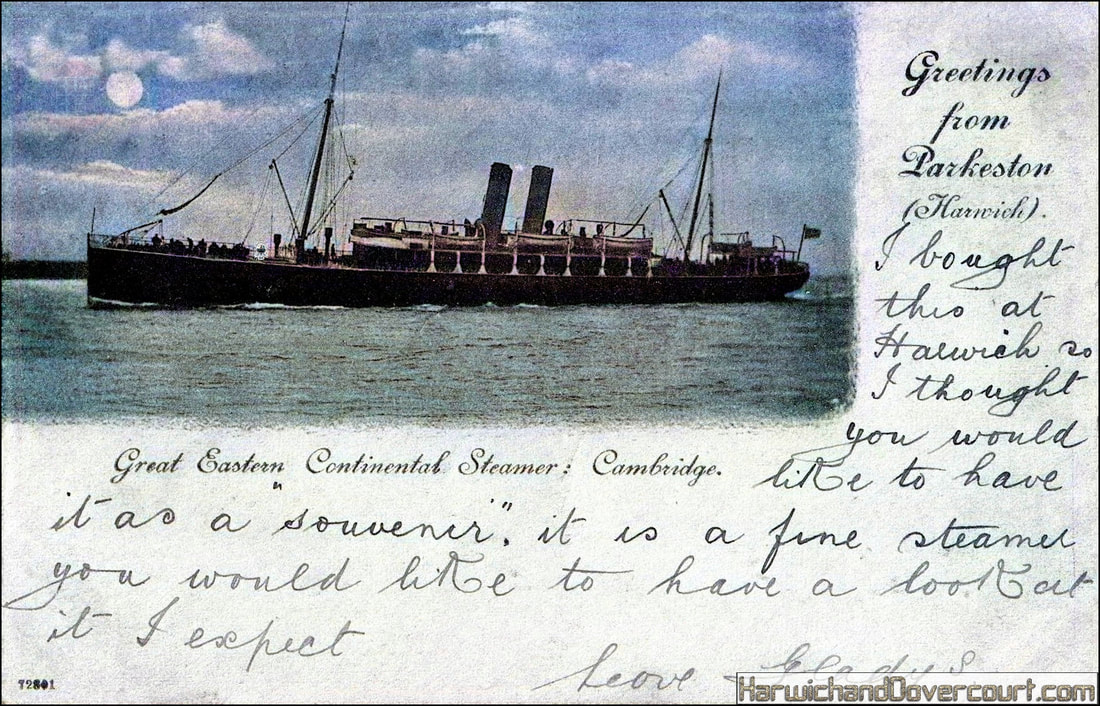 Greetings
from
Parkeston
(Harwich).
I bought
this at
Harwich so
I thought
you would
Great Eastern Continental Steamer: Cambridge.
like to have
it as a "souvenir", it is a fine steamer
you would like to have a look at
it I expect
Love Gladys
72801
HarwichandDovercourt.com